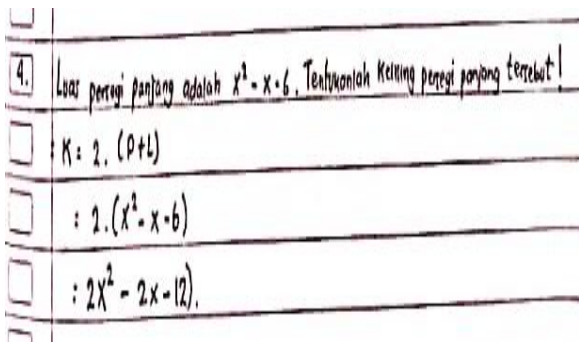 4. Luas persegi panjang adalah x² - x - 6. Tentukanlah Keliling persegi panjang tersebut!
: K = 2. (P+L)
: 2. (x² - x - 6)
: 2x² - 2x - 12).